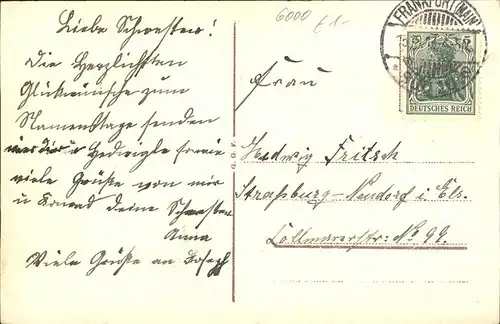 Liebe Schwester!
Die Herzlichsten
Glückwünsche zum
Namenstage senden
Hedwigle sowie
viele Grüße von mir
u Konrad deine Schwester
Anna
Viele Grüße an Joseph
6000 £1-
FRANKFURT (MAIN)
5 5
DEUTSCHES REICH
G. G. F.
Frau
Hedwig Fritsch
Straßburg-Neudorf i. Els.
No 99.